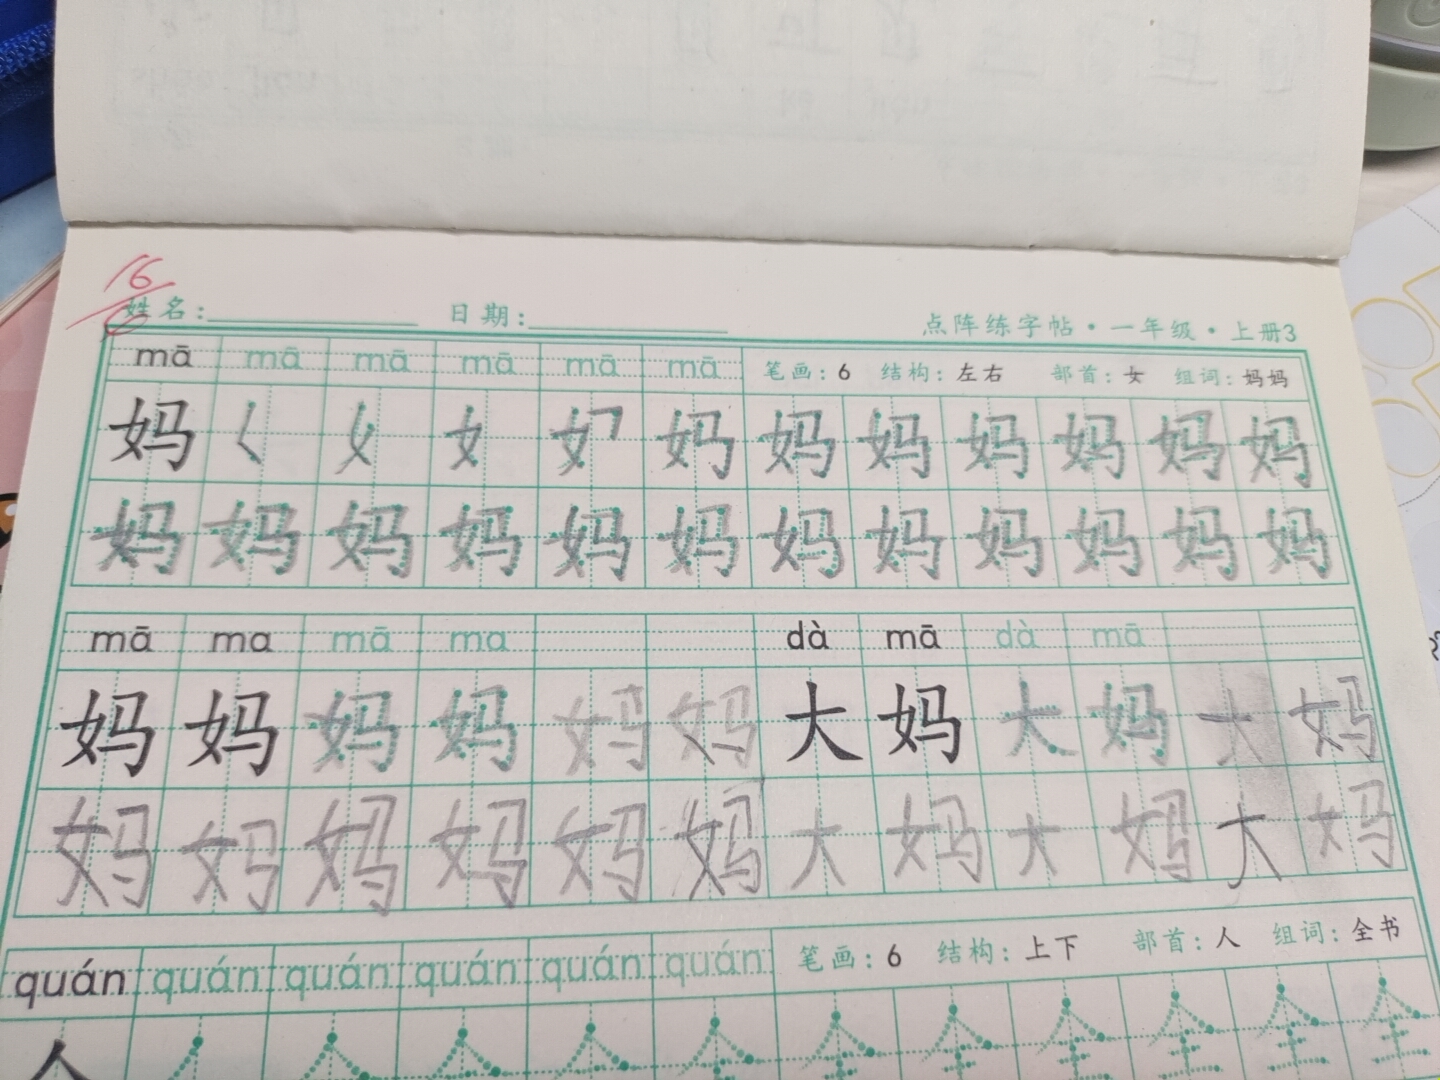 16
姓名: 日期: 点阵练字帖·一年级·上册3
mā mā mā mā mā mā 笔画:6 结构:左右 部首:女 组词:妈妈
妈 く 女 女 妈 妈 妈 妈 妈 妈 妈
妈 妈 妈 妈 妈 妈 妈 妈 妈 妈 妈 妈
mā ma mā ma dà mā dà mā
妈 妈 妈 妈 妈 妈 大 妈 大 妈 大 妈
妈 妈 妈 妈 妈 妈 大 妈 大 妈 大 妈
quán quán quán quán quán quán 笔画:6 结构:上下 部首:人 组词:全书
全 全 全 全 全 全